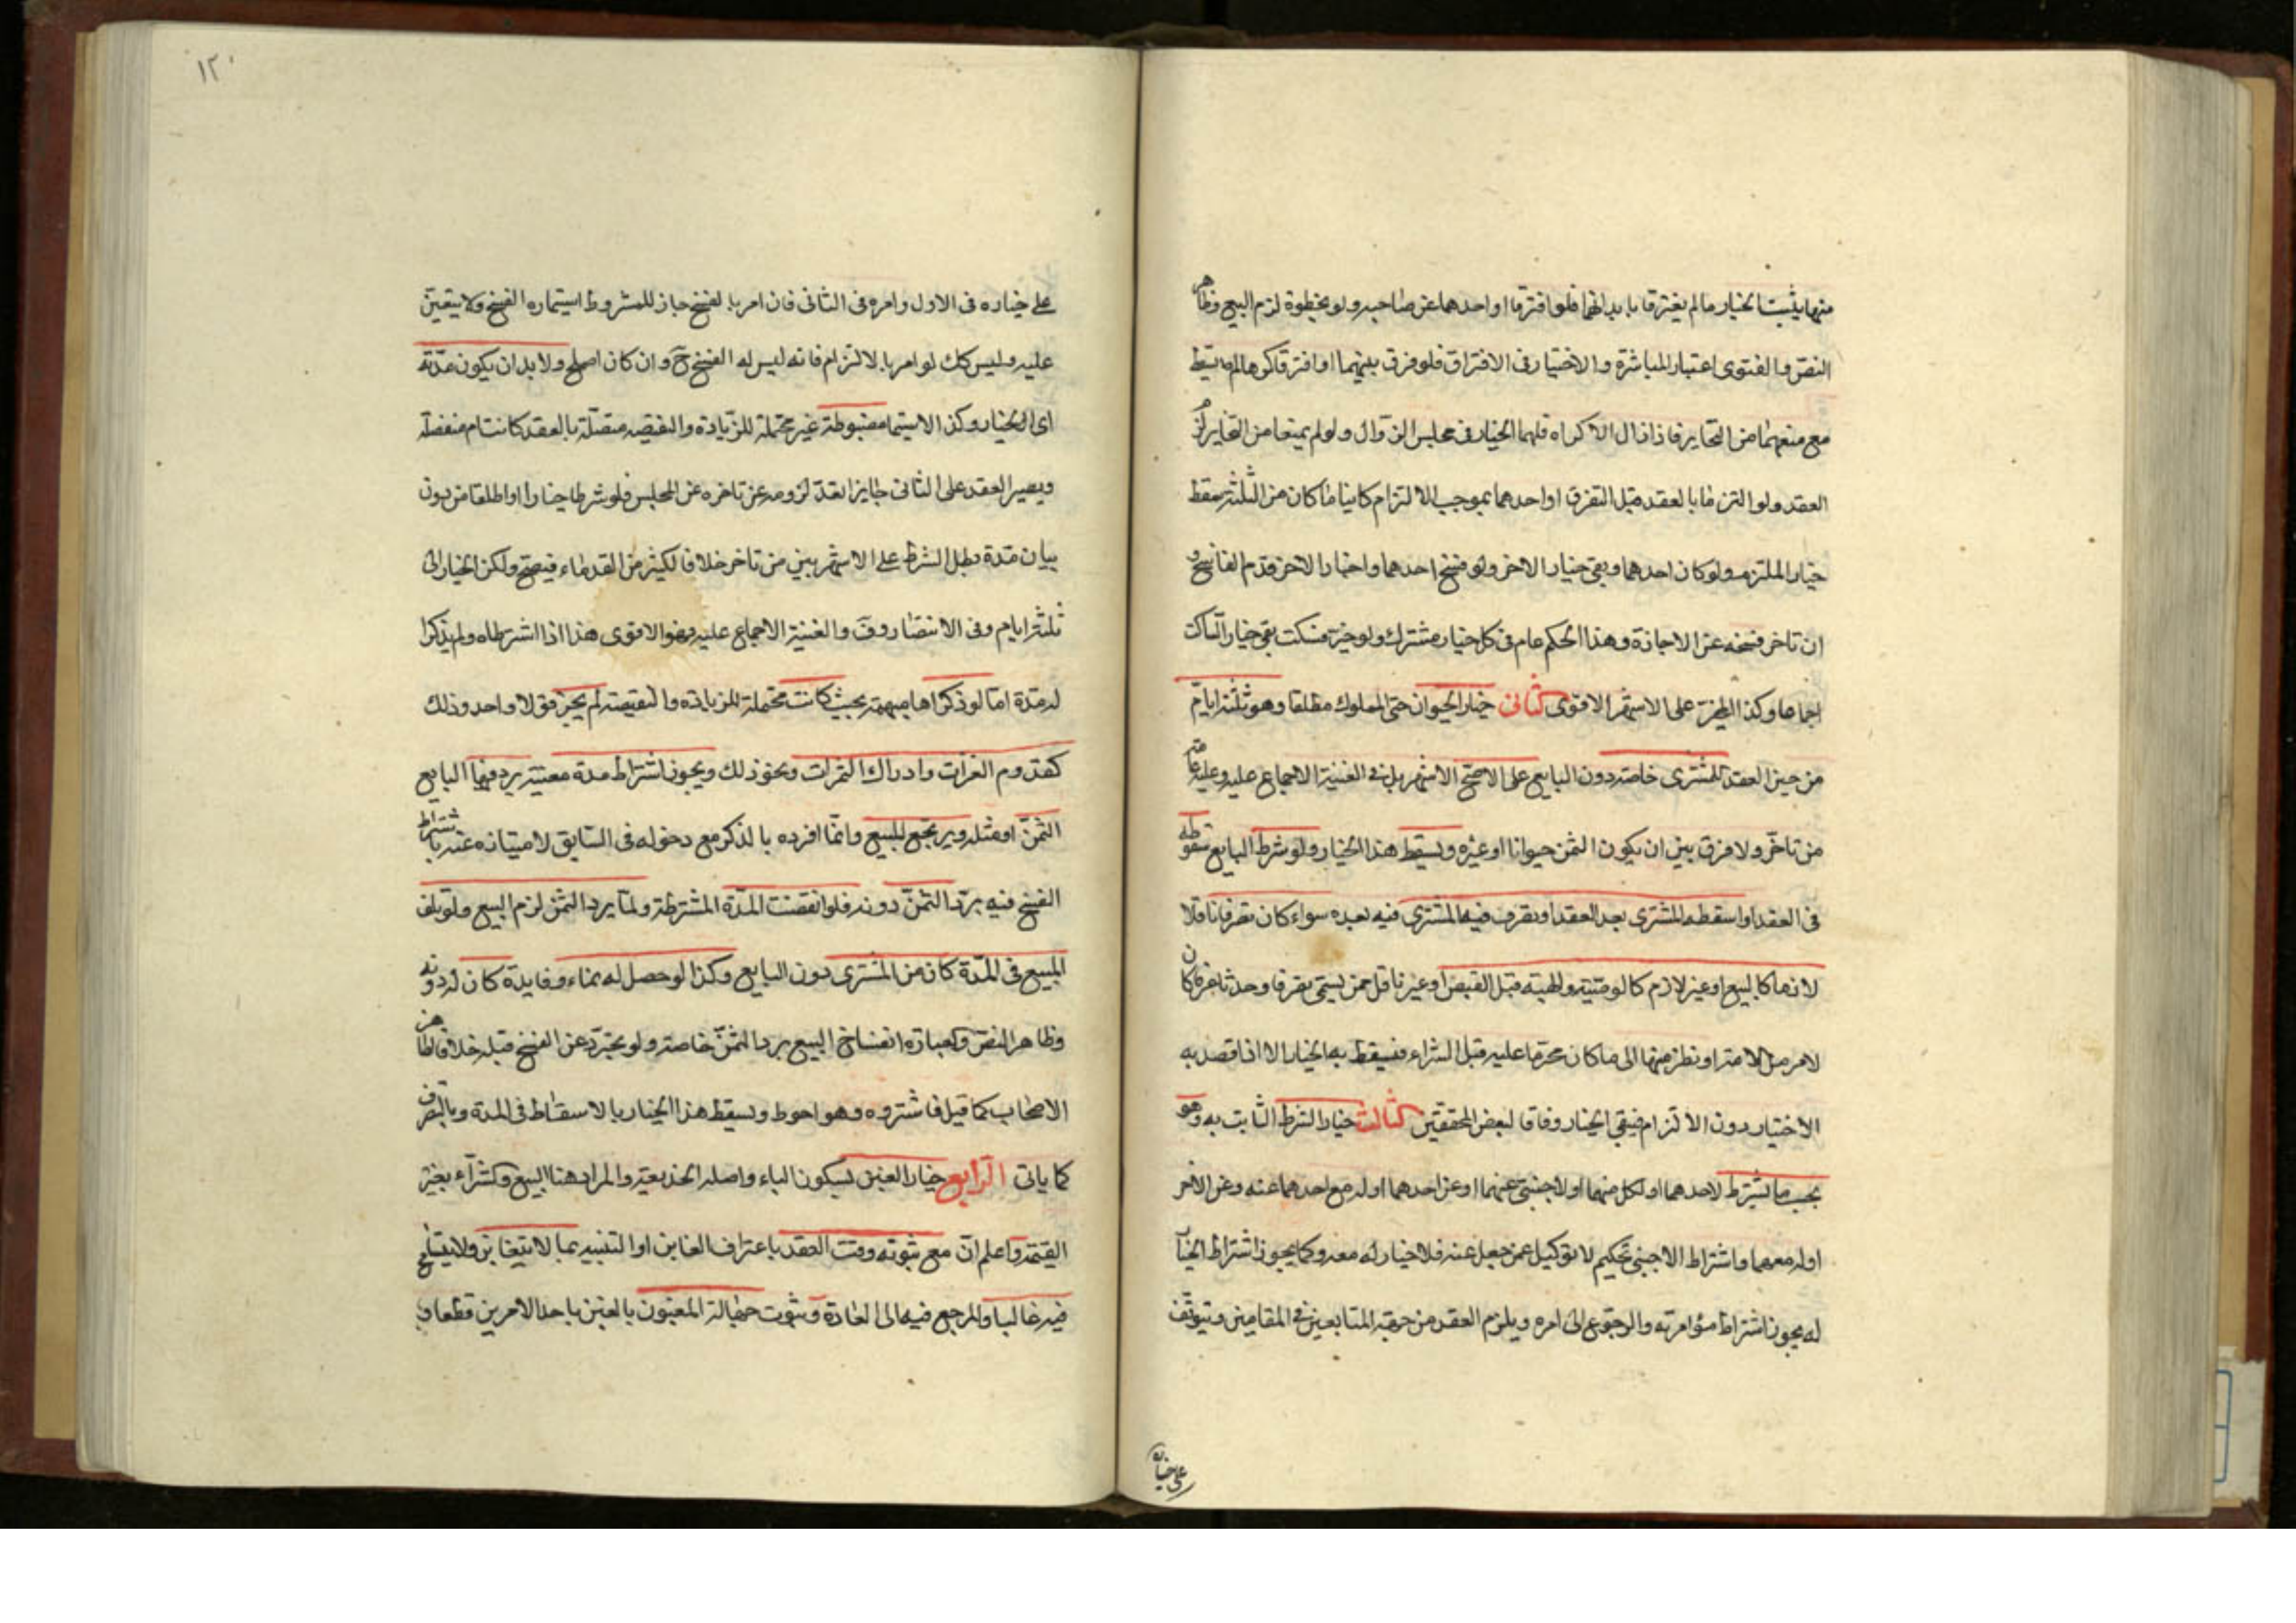 منها يثبت الخيار ما لم يفترقا بابدانهما فلو افترقا او احدهما عن صاحبه ولو بخطوة لزم البيع وظاهر
النص والفتوى اعتبار المباشرة والاختيار في الافتراق فلو فرق بينهما او افترقا كرها لم يسقط
مع منعهما من التخاير فاذا زال الاكراه فلهما الخيار في مجلس الزوال ولو لم يمنعا من التخاير لزم
العقد ولو التزما بالعقد قبل التفرق او احدهما بموجب الالتزام كاينا ما كان من الثلثة سقط
خيار الملتزم ولو كان احدهما وبقى خيار الاخر ولو فسخ احدهما واختار الاخر قدم الفاسخ و
ان تاخر فسخه عن الاجازة وهذا الحكم عام في كل خيار مشترك ولو خيره فسكت بقى خيار الساكت
اجماعا وكذا المخير على الاشهر الاقوى الثاني خيار الحيوان حتى المملوك مطلقا وهو ثلثة ايام
من حين العقد للمشترى خاصة دون البايع على الاصح الاشهر بل في الغنية الاجماع عليه وعليه عامة
من تاخر ولا فرق بين ان يكون الثمن حيوانا او غيره ويسقط هذا الخيار ولو شرط البايع سقوطه
في العقد او اسقطه المشترى بعد العقد او تصرف فيه المشترى فيه بعده سواء كان تصرفا ناقلا
لازما كالبيع او غير لازم كالوصية والهبة قبل القبض او غير ناقل ممن يسمى تصرفا وحدثا عرفا كان
لامر مثل الامة او نظر منها الى ما كان محرما عليه قبل الشراء فيسقط به الخيار الا اذا قصد به
الاختيار دون الالتزام فيبقى الخيار وفاقا لبعض المحققين الثالث خيار الشرط الثابت به وهو
بحسب ما يشترط لاحدهما او لكل منهما او لاجنبى عنهما او عن احدهما اوله مع احدهما عنه وعن الاخر
اوله معهما واشتراط الاجنبى تحكيم لا توكيل عمن جعل عنه فلا خيار له معه وكما يجوز اشتراط الخيار
له يجوز اشتراط مؤامرته والرجوع الى امره ويلزم العقد من جهة المتابعين في المقامين ويتوقف
على خياره
١٢٠
على خياره في الاول وامره في الثاني فان امر بالفسخ جاز للمشروط استيماره الفسخ ولا يتعين
عليه وليس كك لو امر بالالتزام فانه ليس له الفسخ ح وان كان اصلح ولا بد ان يكون مدته
اى الخيار وكذا الاستيمار مضبوطة غير محتملة للزيادة والنقيصه متصلة بالعقد كانت ام منفصلة
ويصير العقد على الثاني جايزا بعد لزومه عن تاخره عن المجلس فلو شرطا خيارا واطلقا من دون
بيان مدة بطل الشرط على الاشهر بين من تاخر خلافا لكثير من القدماء فيصح ولكن الخيار الى
ثلثة ايام وفي الانتصار وف والغنية الاجماع عليه وهو الاقوى هذا اذا اشترطاه ولم يذكرا
له مدة اما لو ذكراها مبهمة بحيث كانت محتملة للزيادة والنقيصة لم يجز قولا واحد وذلك
كقدوم الغزات وادراك الثمرات ونحو ذلك ويجوز اشتراط مدة معينة يرد فيها البايع
الثمن او مثله ويرتجع المبيع وانما افرده بالذكر مع دخوله في السابق لامتيازه عنه باشتراط
الفسخ فيه برد الثمن دونه فلو انقضت المدة المشترطة ولما يرد الثمن لزم البيع ولو تلف
المبيع في المدة كان من المشترى دون البايع وكذا لو حصل له نماء وفايدة كان له دونه
وظاهر النص والعبارة انفساخ البيع برد الثمن خاصة ولو تجرد عن الفسخ قبله خلافا لظاهر
الاصحاب كما قيل فاشتروه وهو احوط ويسقط هذا الخيار بالاسقاط في المدة وبالتصرف
كما ياتى الرابع خيار الغبن بسكون الباء واصله الخديعة والمراد هنا البيع والشراء بغير
القيمة واعلم ان مع ثبوته وقت العقد باعتراف الغابن او التنبيه بما لا يتغابن ولا يتسامح
فيه غالبا والمرجع فيه الى العادة وثبوت جهالة المغبون بالغبن باحد الامرين قطعا و